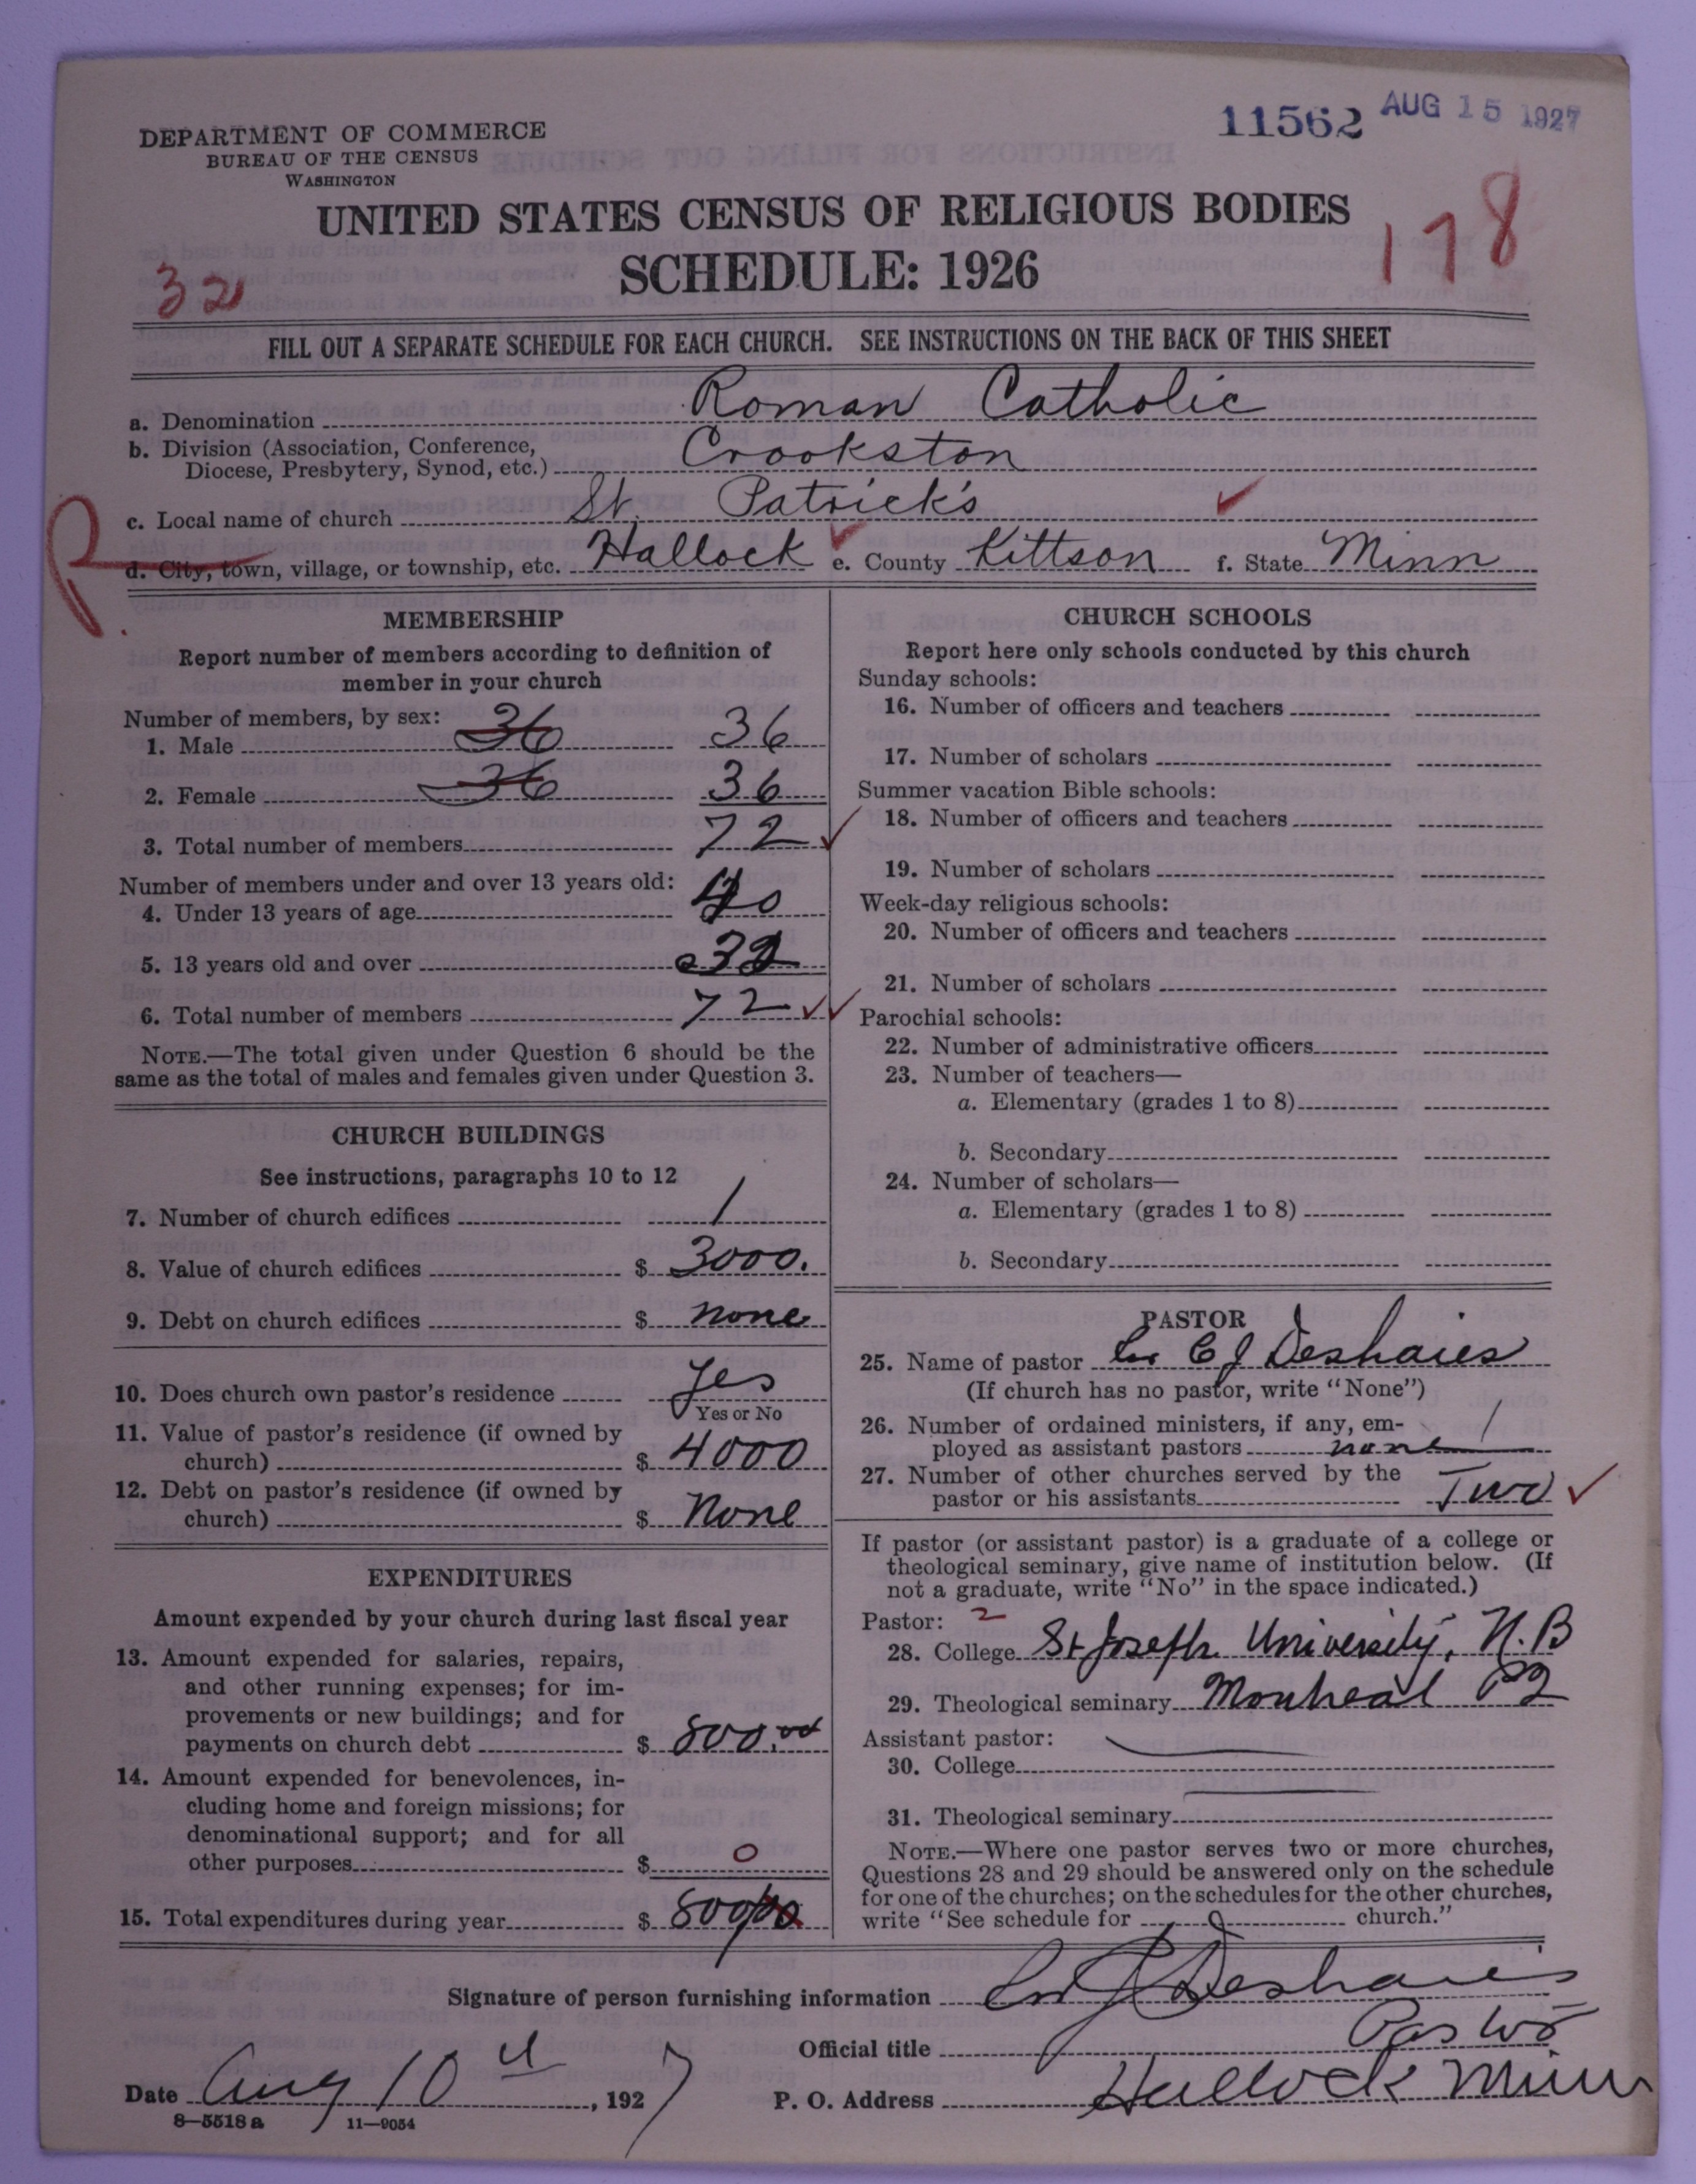 11562 AUG 15 1927
DEPARTMENT OF COMMERCE
BUREAU OF THE CENSUS
WASHINGTON
UNITED STATES CENSUS OF RELIGIOUS BODIES
SCHEDULE: 1926
32
178
FILL OUT A SEPARATE SCHEDULE FOR EACH CHURCH. SEE INSTRUCTIONS ON THE BACK OF THIS SHEET
a. Denomination Roman Catholic
b. Division (Association, Conference,
Diocese, Presbytery, Synod, etc.) Crookston
c. Local name of church St. Patrick's
R.
d. City, town, village, or township, etc. Hallock e. County Kittson f. State Minn
MEMBERSHIP
Report number of members according to definition of
member in your church
Number of members, by sex:
1. Male 36 36
2. Female 36 36
3. Total number of members 72
Number of members under and over 13 years old:
4. Under 13 years of age 40
5. 13 years old and over 32
6. Total number of members 72
NOTE.—The total given under Question 6 should be the
same as the total of males and females given under Question 3.
CHURCH BUILDINGS
See instructions, paragraphs 10 to 12
7. Number of church edifices 1
8. Value of church edifices $ 3000.
9. Debt on church edifices $ none
10. Does church own pastor's residence Yes
Yes or No
11. Value of pastor's residence (if owned by
church) $ 4000
12. Debt on pastor's residence (if owned by
church) $ None
EXPENDITURES
Amount expended by your church during last fiscal year
13. Amount expended for salaries, repairs,
and other running expenses; for im-
provements or new buildings; and for
payments on church debt $ 800.00
14. Amount expended for benevolences, in-
cluding home and foreign missions; for
denominational support; and for all
other purposes $ 0
15. Total expenditures during year $ 800
CHURCH SCHOOLS
Report here only schools conducted by this church
Sunday schools:
16. Number of officers and teachers
17. Number of scholars
Summer vacation Bible schools:
18. Number of officers and teachers
19. Number of scholars
Week-day religious schools:
20. Number of officers and teachers
21. Number of scholars
Parochial schools:
22. Number of administrative officers
23. Number of teachers—
a. Elementary (grades 1 to 8)
b. Secondary
24. Number of scholars—
a. Elementary (grades 1 to 8)
b. Secondary
PASTOR
25. Name of pastor C J Deshaies
(If church has no pastor, write "None")
26. Number of ordained ministers, if any, em-
ployed as assistant pastors none
27. Number of other churches served by the
pastor or his assistants Two
If pastor (or assistant pastor) is a graduate of a college or
theological seminary, give name of institution below. (If
not a graduate, write "No" in the space indicated.)
Pastor: 2
28. College St Joseph University, N.B
29. Theological seminary Montreal PQ
Assistant pastor:
30. College
31. Theological seminary
NOTE.—Where one pastor serves two or more churches,
Questions 28 and 29 should be answered only on the schedule
for one of the churches; on the schedules for the other churches,
write "See schedule for church."
Signature of person furnishing information J Deshaies
Official title Pastor
Date Aug 10 th, 1927 P. O. Address Hallock Minn
8—5518 a 11—9054